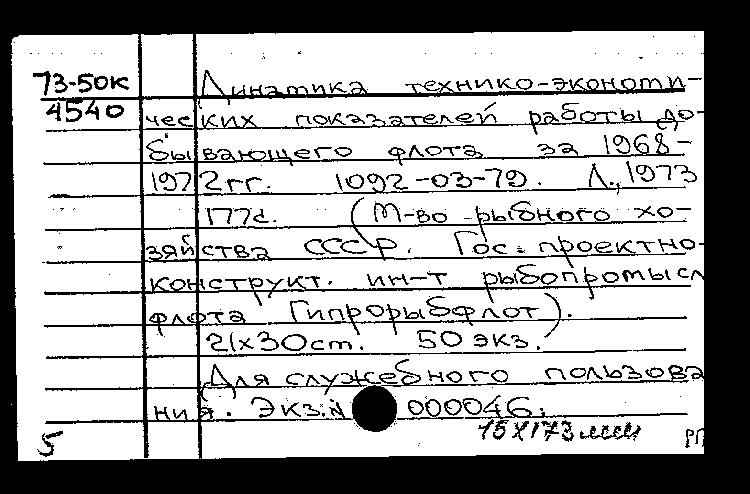 73-50к Динатика технико-эконоти-
4540 ческих показателей работы до-
бывающего флота за 1968-
1972 гг. 1092-03-79. Л., 1973
177с. (М-во рыбного хо-
зяйства СССР. Гос. проектно-
конструкт. ин-т рыбопромысл
флота Гипрорыбфлот).
21х30ст. 50 экз.
(Для служебного пользова
ния. Экз. N 000046.
5 РП